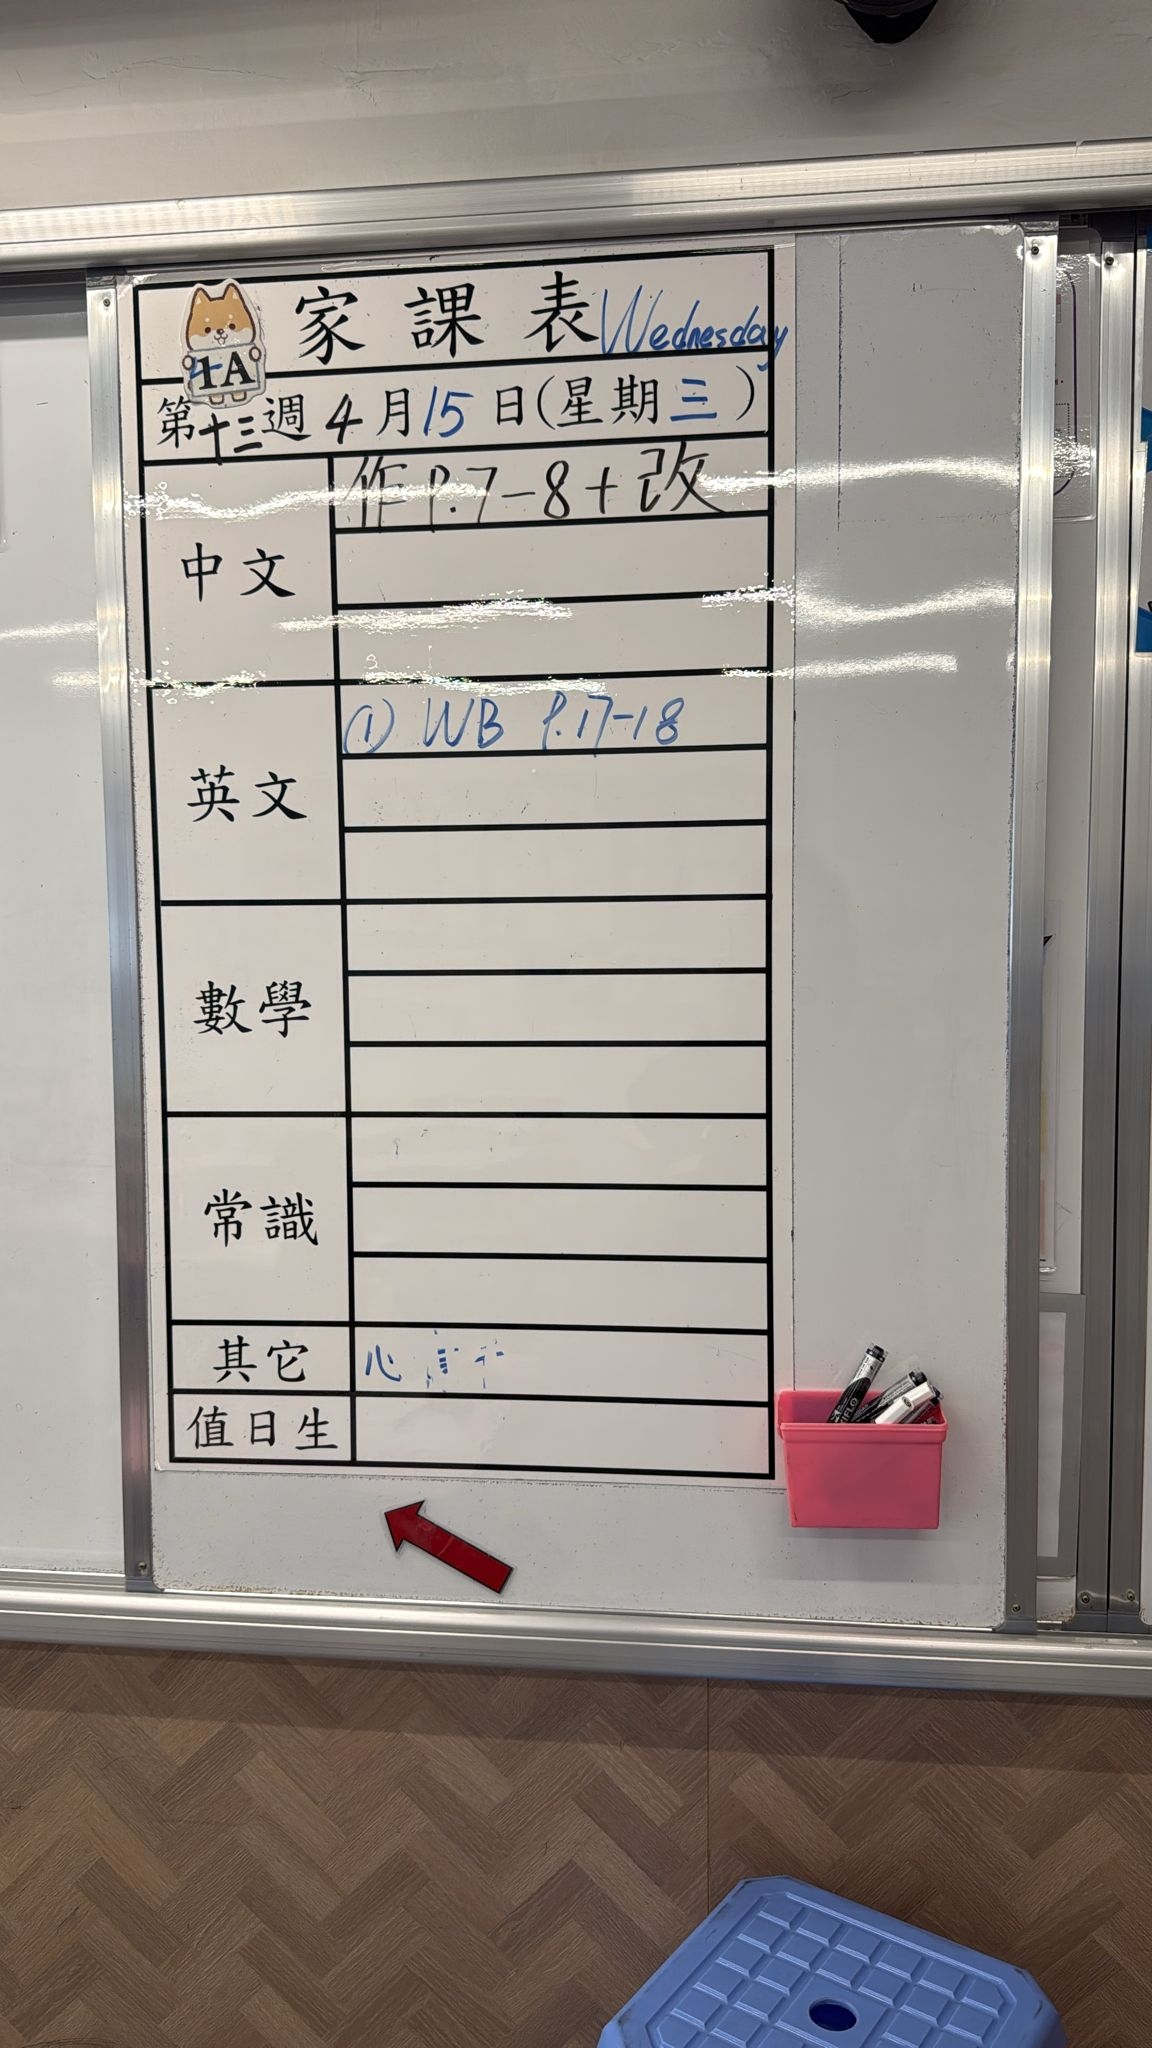 家課表 Wednesday
1A
第十三週 4月15日(星期三)
中文
作 P.7-8+改
英文
① WB P.17-18
數學
常識
其它
心
值日生